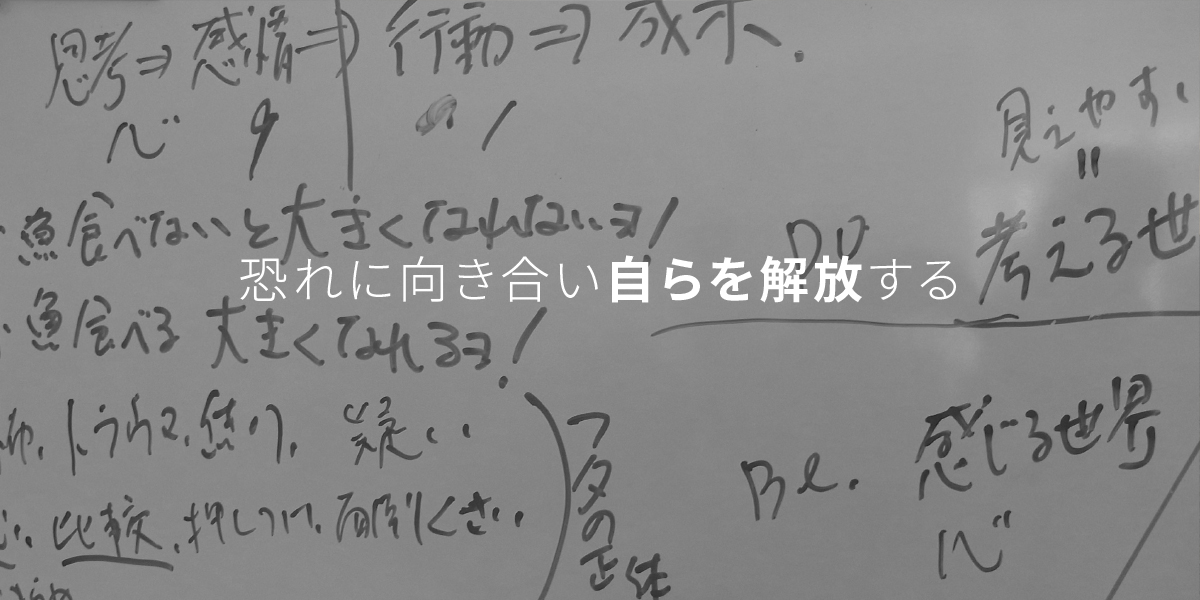 思考⇒感情⇒行動⇒成果.
見えやすい
〃
・魚食べないと大きくなれないヨ!
DO 考える世
恐れに向き合い自らを解放する
・魚食べる 大きくなれるヨ!
トラウマ、焦り、疑い
フタの正体
Be. 感じる世界
比較、押しつけ、面倒くさい、